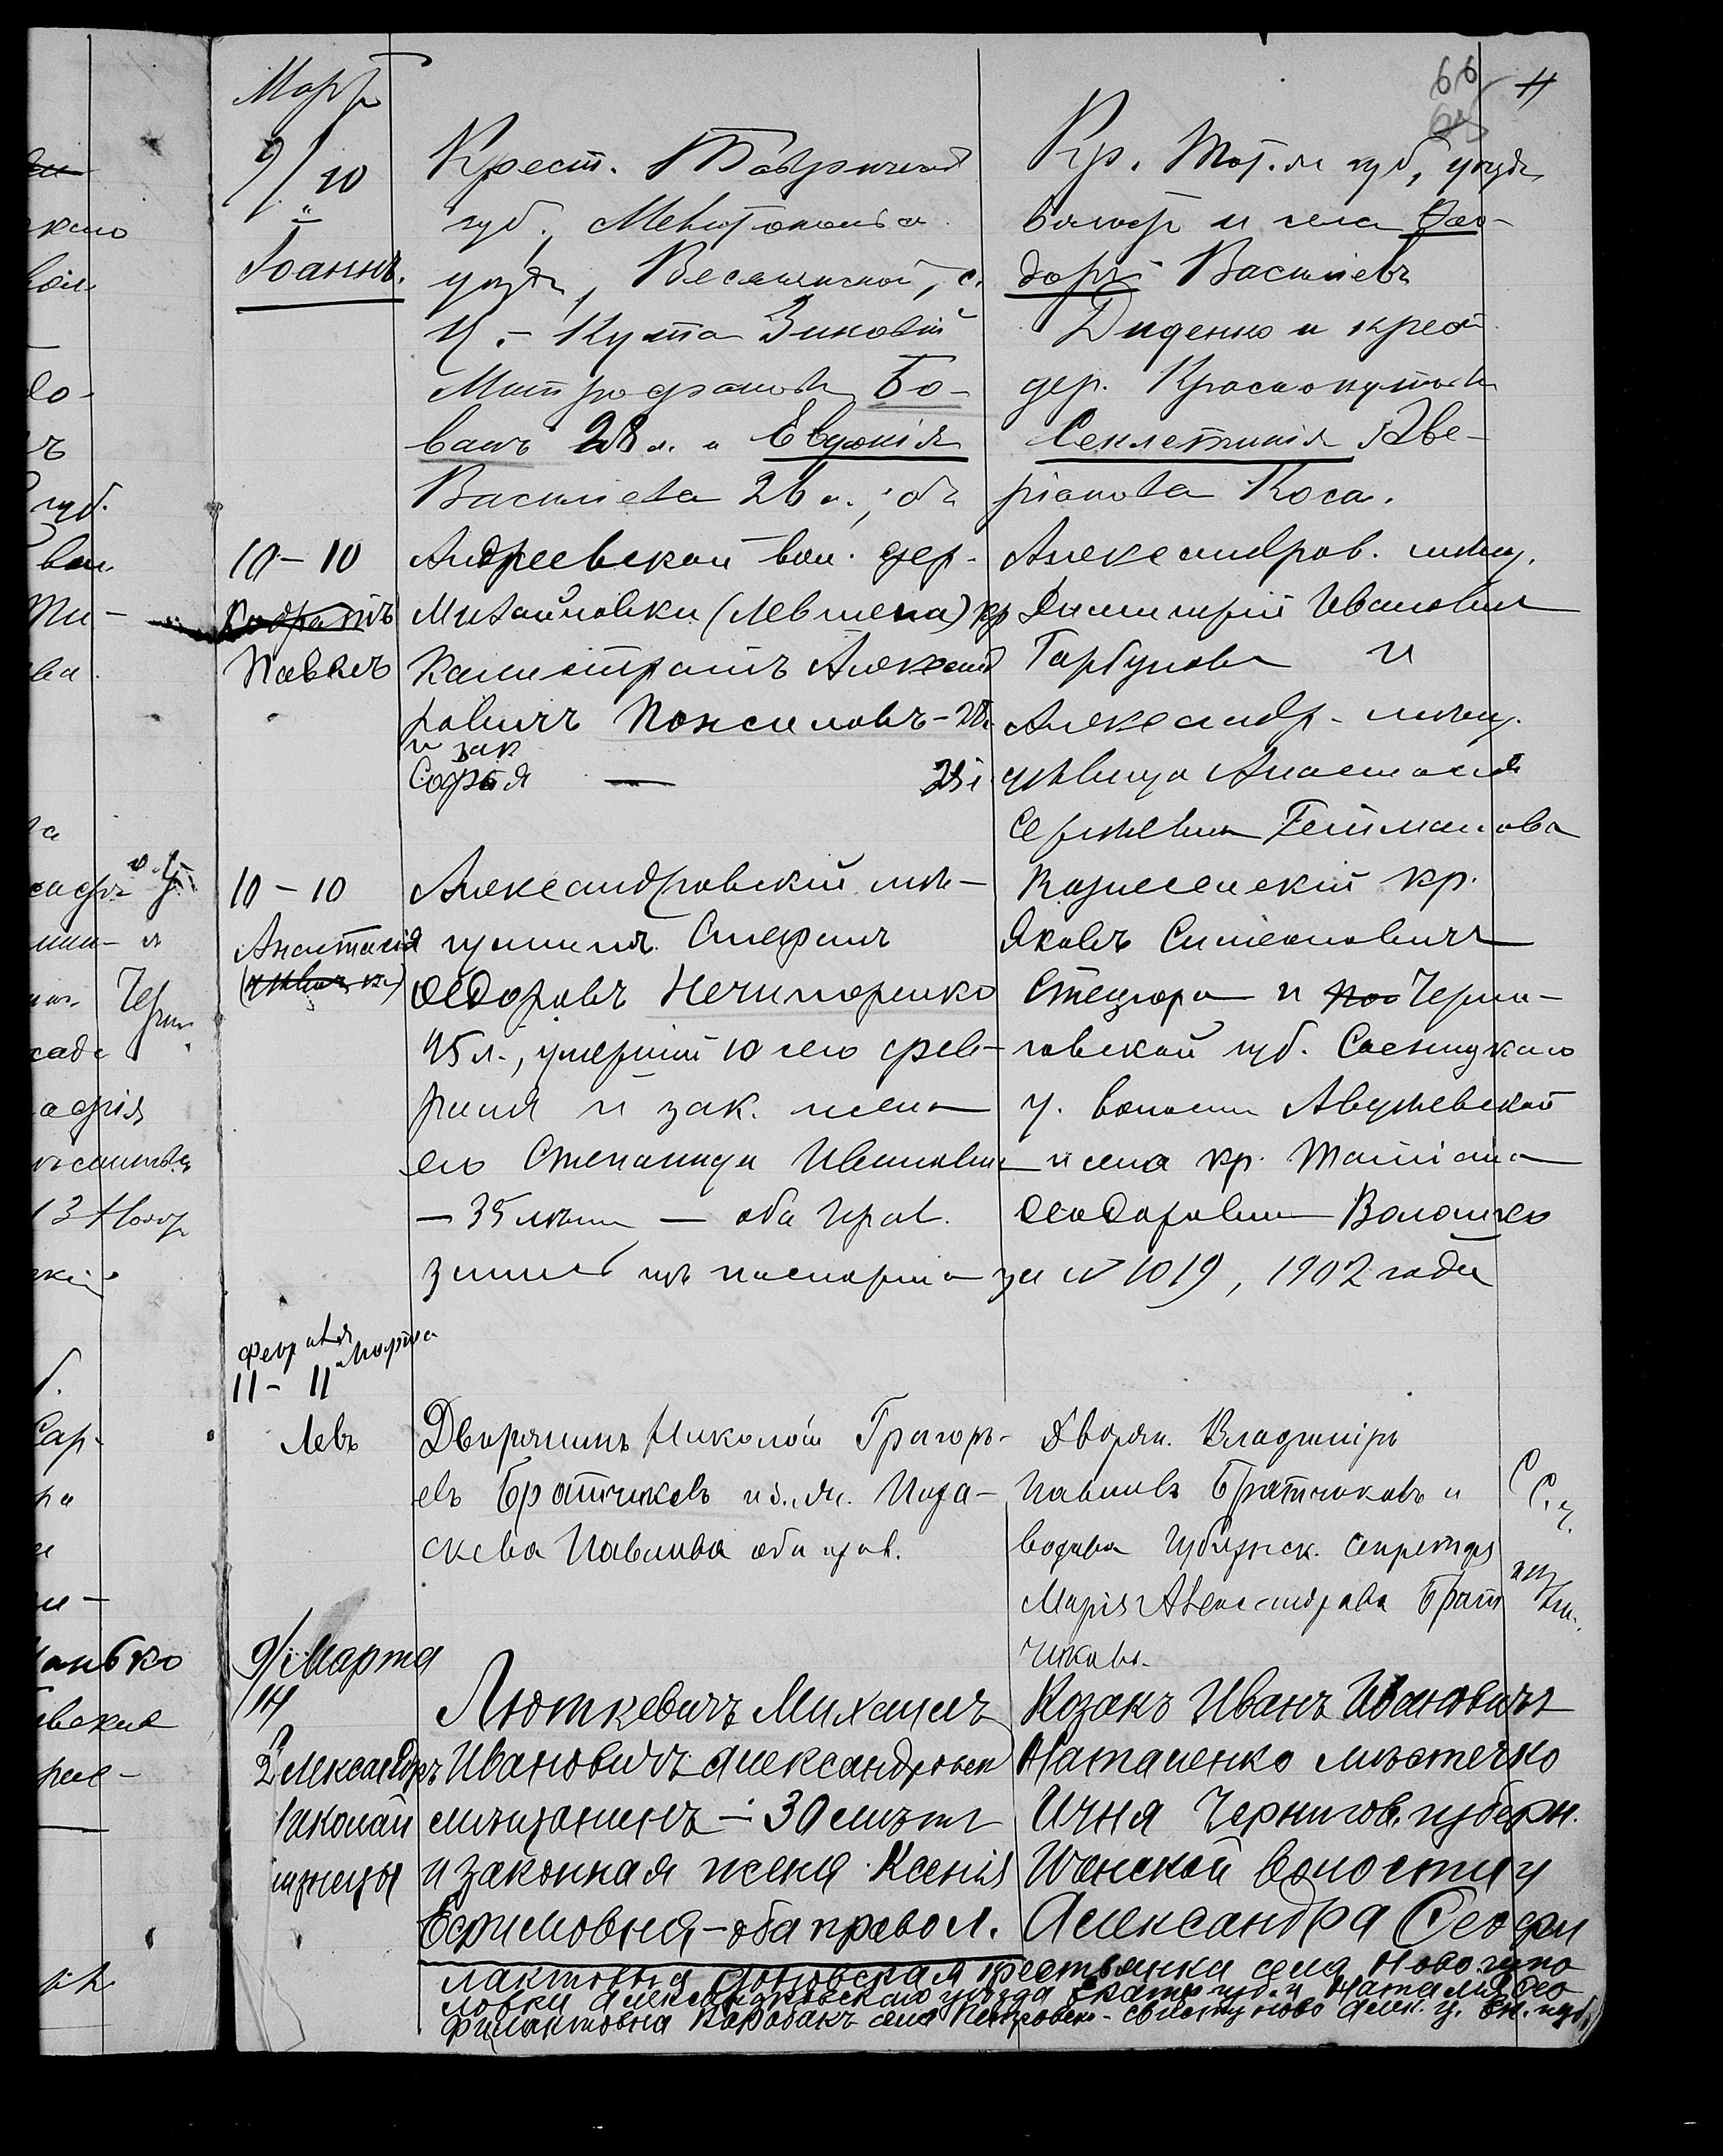 66
Мартъ
9/10
Іоаннъ.
Крест. Таврической
губ., Мелитопольс.
уезда, Веселянской, с.
Ц.-Кута Зиновій
Митрофановъ Бо-
ванъ 28 л. и Евгенія
Васильева 26 л., об.
Кр. губ, уезда
волости и села Ѳео-
доръ Васильевъ
Диденко и крест.
дер. Краснокутовки
Секлетикія Аве-
ріанова Коса.
10-10
Кодратъ
Павелъ
Андреевской вол. дер.
Михайловки (Левшина) кр
Калистратъ Александ
ровичъ
и зак
Софья —
Александров. мѣщ.
Димитрій Ивановичъ
Горбуновъ и
Александр. мѣщ.
дѣвица Анастасія
Сергѣевна Гетманова
10-10
Анастасія
Александровскій мѣ-
щанинъ Стефанъ
Ѳедоровъ Нечипоренко
45 л., умершій 10 сего фев-
раля и зак. жена
его Степанида Ивановна
— 35 лѣтъ — оба прав.
паспорта за № 1019, 1902 года
Вознесенскій кр.
Яковъ Симеоновичъ
Стецюра и Черни-
говской губ. Сосницкаго
у. волости
и села кр. Татіана
Ѳеодоровна Волошко
Февраля
11 - 11 Марта
Левъ
Дворянинъ Николай Григорь-
евъ Братчиковъ и з. ж. Пара-
скева Павлова оба прав.
Дворян. Владиміръ
Павловъ Братчиковъ и
вдова Губернск. Секретаря
Марія Александрова Брат
чикова.
9/Марта
14
2 Александръ
Николай
близнецы
Люткевичъ Михаилъ
Ивановичъ Александровск
мѣщанинъ — 30 лѣтъ
и законная жена Ксенія
Ефимовна, — оба правосл.
Козакъ Иванъ Ивановичъ
Наталенко мѣстечко
Ичня Чернигов. губерн.
Иченской волости и
Александра Ѳеофи
лактовна крестьянка села Новогупо
ловки Александровскаго уѣзда Екатер губ. и Наталія Ѳео
филактовна Карабакъ села Петровско-Свистуново Алек. у. Ек. губ.